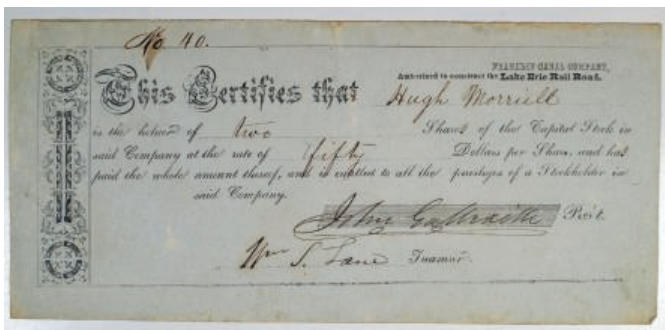 No 40.
FRANKLIN CANAL COMPANY,
Authorized to construct the Lake Erie Rail Road.
This Certifies that Hugh Morrill
is the holder of two Shares of the Capital Stock in
said Company at the rate of fifty Dollars per Share, and has
paid the whole amount thereof, and is entitled to all the privileges of a Stockholder in
said Company.
John Galbraith Pres't.
Wm S. Lane Treasurer.